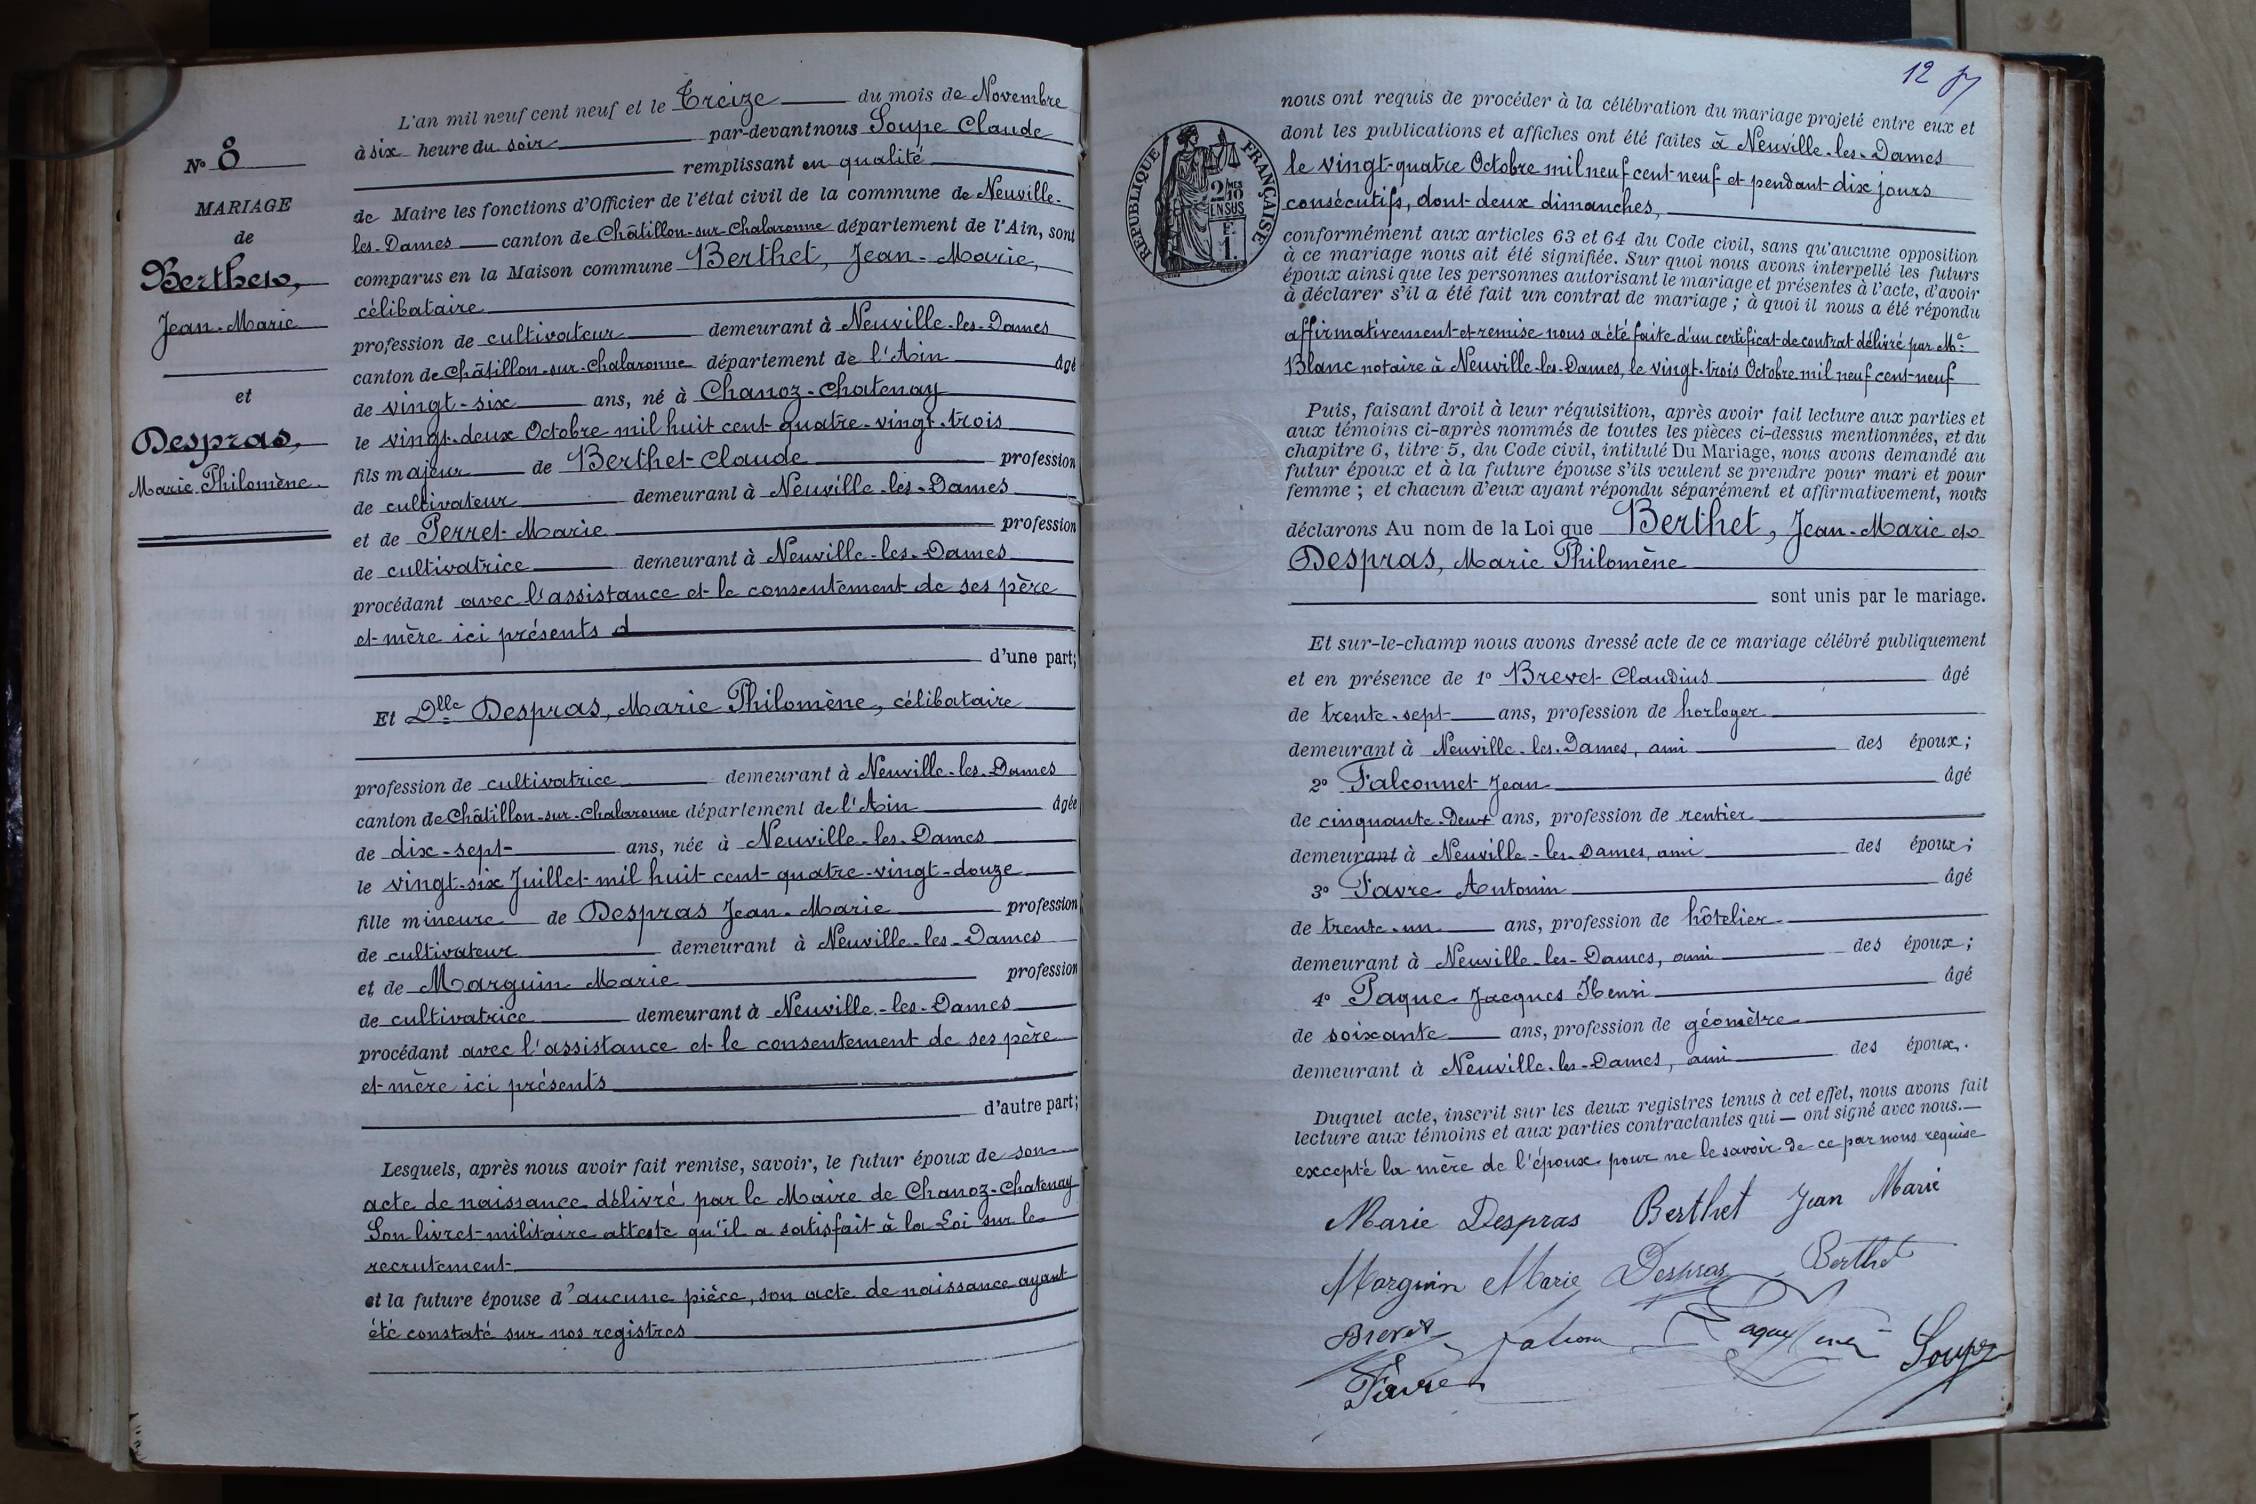 L'an mil neuf cent neuf et le Treize du mois de Novembre
à six heure du soir par-devant nous Soupe Claude
remplissant en qualité
de Maire les fonctions d'Officier de l'état civil de la commune de Neuville-
les-Dames canton de Châtillon-sur-Chalaronne département de l'Ain, sont
comparus en la Maison commune Berthet, Jean-Marie,
célibataire
profession de cultivateur demeurant à Neuville-les-Dames
canton de Châtillon-sur-Chalaronne département de l'Ain âgé
de vingt-six ans, né à Chanoz-Chatenay
le vingt-deux Octobre mil huit cent quatre-vingt-trois
fils majeur de Berthet Claude profession
de cultivateur demeurant à Neuville-les-Dames
et de Perret Marie profession
de cultivatrice demeurant à Neuville-les-Dames
procédant avec l'assistance et le consentement de ses père
et mère ici présents d
d'une part;
Et Dlle Despras, Marie Philomène, célibataire
profession de cultivatrice demeurant à Neuville-les-Dames
canton de Châtillon-sur-Chalaronne département de l'Ain âgée
de dix-sept ans, née à Neuville-les-Dames
le vingt-six Juillet mil huit cent quatre-vingt-douze
fille mineure de Despras Jean-Marie profession
de cultivateur demeurant à Neuville-les-Dames
et de Marguin Marie profession
de cultivatrice demeurant à Neuville-les-Dames
procédant avec l'assistance et le consentement de ses père
et mère ici présents
d'autre part;
Lesquels, après nous avoir fait remise, savoir, le futur époux de son
acte de naissance délivré par le Maire de Chanoz-Chatenay
Son livret militaire atteste qu'il a satisfait à la Loi sur le
recrutement
et la future épouse d'aucune pièce, son acte de naissance ayant
été constaté sur nos registres
No 8
MARIAGE
de
Berthet,
Jean-Marie
et
Despras,
Marie Philomène
12
RÉPUBLIQUE FRANÇAISE
2 MES
10
EN SUS
F
1
nous ont requis de procéder à la célébration du mariage projeté entre eux et
dont les publications et affiches ont été faites à Neuville-les-Dames
le vingt-quatre Octobre mil neuf cent neuf et pendant dix jours
consécutifs, dont deux dimanches,
conformément aux articles 63 et 64 du Code civil, sans qu'aucune opposition
à ce mariage nous ait été signifiée. Sur quoi nous avons interpellé les futurs
époux ainsi que les personnes autorisant le mariage et présentes à l'acte, d'avoir
à déclarer s'il a été fait un contrat de mariage ; à quoi il nous a été répondu
affirmativement et remise nous a été faite d'un certificat de contrat délivré par Me
Blanc notaire à Neuville-les-Dames, le vingt-trois Octobre mil neuf cent-neuf
Puis, faisant droit à leur réquisition, après avoir fait lecture aux parties et
aux témoins ci-après nommés de toutes les pièces ci-dessus mentionnées, et du
chapitre 6, titre 5, du Code civil, intitulé Du Mariage, nous avons demandé au
futur époux et à la future épouse s'ils veulent se prendre pour mari et pour
femme ; et chacun d'eux ayant répondu séparément et affirmativement, nous
déclarons Au nom de la Loi que Berthet, Jean-Marie et
Despras, Marie Philomène
sont unis par le mariage.
Et sur-le-champ nous avons dressé acte de ce mariage célébré publiquement
et en présence de 1o Brevet Claudius âgé
de trente-sept ans, profession de horloger
demeurant à Neuville-les-Dames, ami des époux;
2o Falconnet Jean âgé
de cinquante-deux ans, profession de rentier
demeurant à Neuville-les-Dames, ami des époux;
3o Favre Antonin âgé
de trente-un ans, profession de hôtelier
demeurant à Neuville-les-Dames, ami des époux;
4o Paque Jacques Henri âgé
de soixante ans, profession de géomètre
demeurant à Neuville-les-Dames, ami des époux.
Duquel acte, inscrit sur les deux registres tenus à cet effet, nous avons fait
lecture aux témoins et aux parties contractantes qui — ont signé avec nous.—
excepté la mère de l'époux pour ne le savoir de ce par nous requise
Marie Despras Berthet Jean Marie
Marguin Marie Despras Berthet
Brevet Soupe
Favre